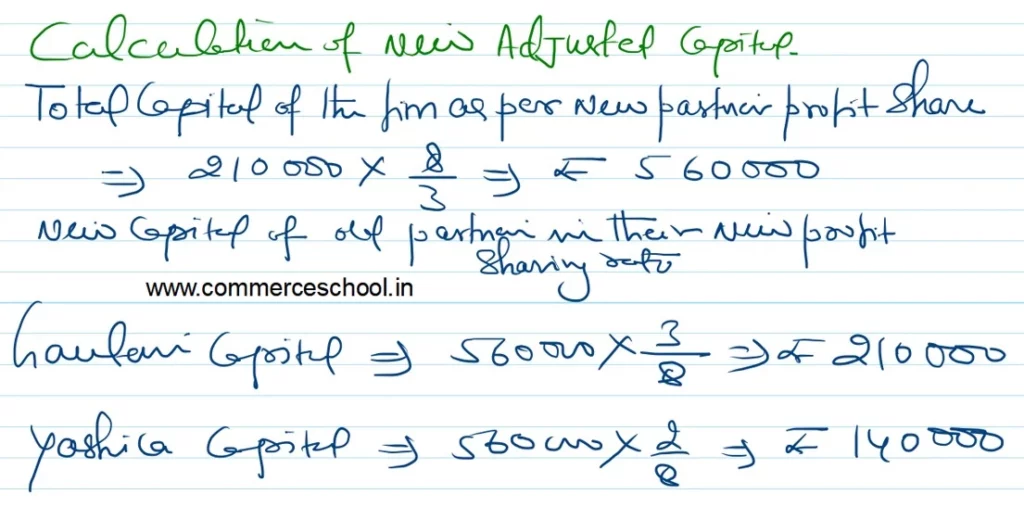 Calculation of New Adjusted Capital.
Total Capital of the firm as per New partner profit Share
⇒ 210000 × 8/3 ⇒ ₹ 560000
New Capital of old partner in their New profit
Sharing ratio
www.commerceschool.in
Gautam Capital ⇒ 560000 × 3/8 ⇒ ₹ 210000
Yashica Capital ⇒ 560000 × 2/8 ⇒ ₹ 140000